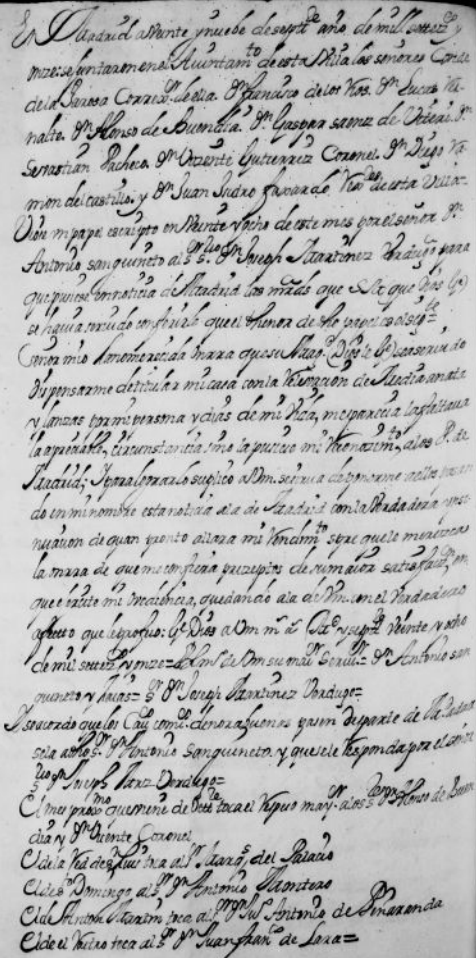 En Madrid a Veinte y nuebe de sepre año de mill settezos y
onze: se juntaron en el Aiuntamto de esta Villa los señores Conde
de la Jarosa Correxor de ella. Dn franco de los Rios. Dn Lucas Rei
nalte. Dn Alonso de Buendia. Dn Gaspar saenz de Viteri. Dn
Sevastian Pacheco. Dn Vizente Gutierrez Coronel. Dn Diego Ra
mon del castillo. y Dn Juan Isidro faxardo Rexdes de esta Villa=
Viose un papel escripto en Veinte y ocho de este mes por el señor Dn
Antonio sanguineto al sr ssrio Dn Joseph Martinez Verdugo para
que pusiese en noticia de Madrid las mrds que Su Mg que Dios ge
se havia seruido conferirle que el thenor de dho papel es el sigte
Señor mio ha merecido la onrra que su Magd (Dios le ge) sea seruido
dispensarme de titular mi casa con la relevacion de Media anata
y lanzas por mi persona y dias de mi Vida, me parecia la faltaua
la apreciable, circunstancia sino la pusiera mi reconozimto, a los P. de
Madrid; y para lograrlo suplico a Vm. se sirva de ponerme a ellos pasan
do en mi nombre esta noticia a la de Madrid con la verdadera insi
nuacion de quan pronto allara mi Rendimto sipre que le merezca
la onrra de que me confiera preceptos de su maior satisfazon, en
que exercite mi Obediencia, quedando a la de Vm. con el Verdadero
afecto que le profeso: Ge Dios a Vm ms as Md y sepre Veinte y ocho
de mil settezos y onze= BLmo de Vm su maior seruor= Dn Antonio san
guineto y Zaias= sr Dn Joseph Martinez Verdugo=
Y se acordo que los Cauos comisos de norabuenas pasen de parte de Md a dar
sela a dho sr Dn Antonio Sanguineto. y que se le responda por el señor
ssrio Dn Joseph Marz Verdugo=
El mes proximo que viene de octre toca el repeso mayor a los sres Dn Alonso de Buen
dia y Dn Vizente Coronel
El de la Red de sn Luis toca al sr Marqs del Palacio
El de sto Domingo al sr Dn Antonio Montero
El de Anton Martin toca al sr Dn Juo Antonio de Peñaranda
El de el Rastro toca al sr Dn Juan franco de Lara=